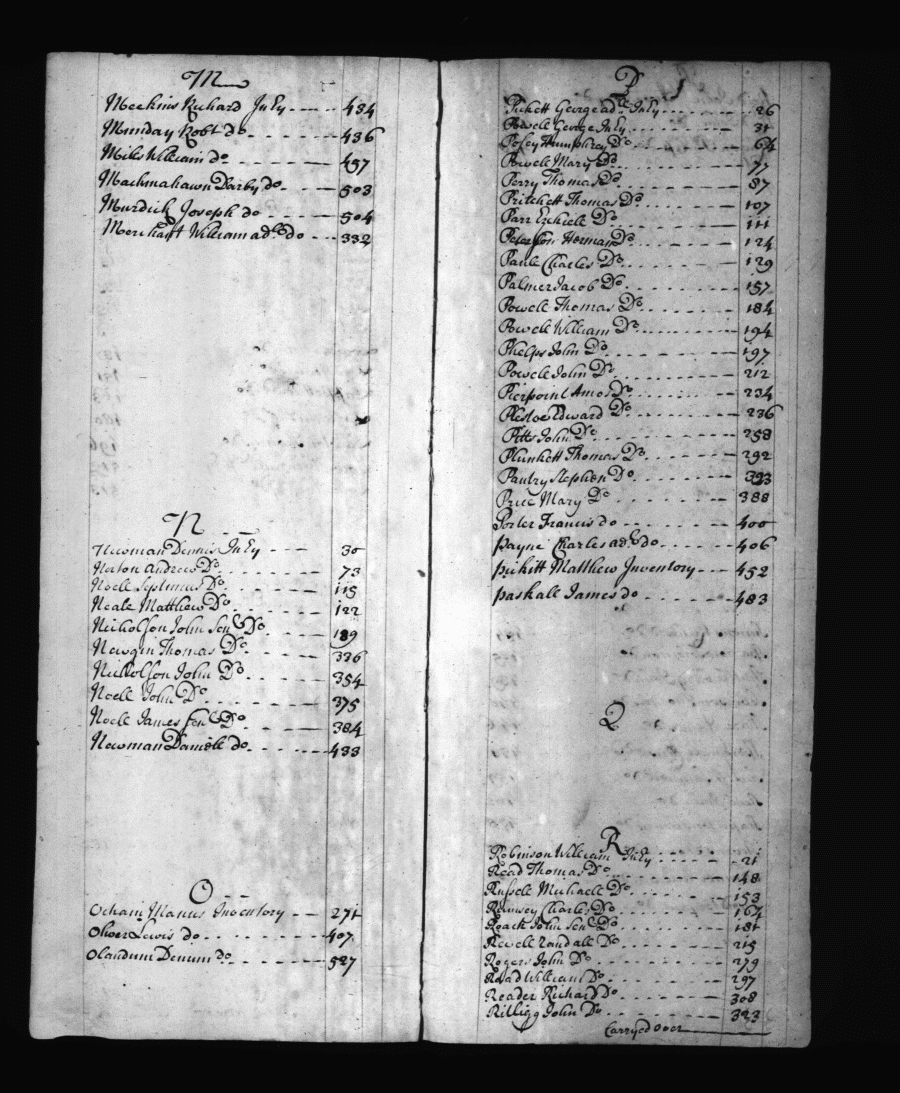 M
Meekins Richard InEy 434
Munday Robt do 436
Miles William do 457
Machmahawn Darby do 503
Murdick Joseph do 504
Merchant William ad do 332
N
Newman Dennis InEy 30
Norton Andrew Do 73
Noell Septimus Do 115
Neale Matthew Do 122
Nicholson John Senr Do 189
Newgin Thomas Do 336
Nicholson John Do 354
Noell John Do 375
Noell James Senr Do 384
Newman Daniell do 433
O
Ocham Manus Inventory 271
Oliver Lewis do 407
Olandum Denum do 527
P
Pickett George InEy 26
Powell George InEy 31
Posey Humphrey Do 64
Powell Mary Do 77
Perry Thomas Do 87
Pritchett Thomas Do 107
Parr Ezkiell Do 111
Peterson Herman Do 124
Paule Charles Do 129
Palmer Jacob Do 157
Powell Thomas Do 184
Powell William Do 194
Phelps John Do 197
Powell John Do 212
Pierpoint Amos Do 234
Edward Do 236
Pitts John Do 258
Plunkett Thomas Do 292
Pautry Stephen Do
Price Mary Do 388
Porter Francis do 400
Payne Charles ad do 406
Pickitt Matthew Inventory 452
Paskale James do 483
Q
R
Robinson William InEy 21
Read Thomas Do 148
Russell Michaell Do 153
Ramsey Charles Do 164
Roach John Senr Do 181
Revell Randall Do 215
Rogers John Do 279
Road William Do 297
Reader Richard Do 308
Rilligg John Do 323
Carryed over